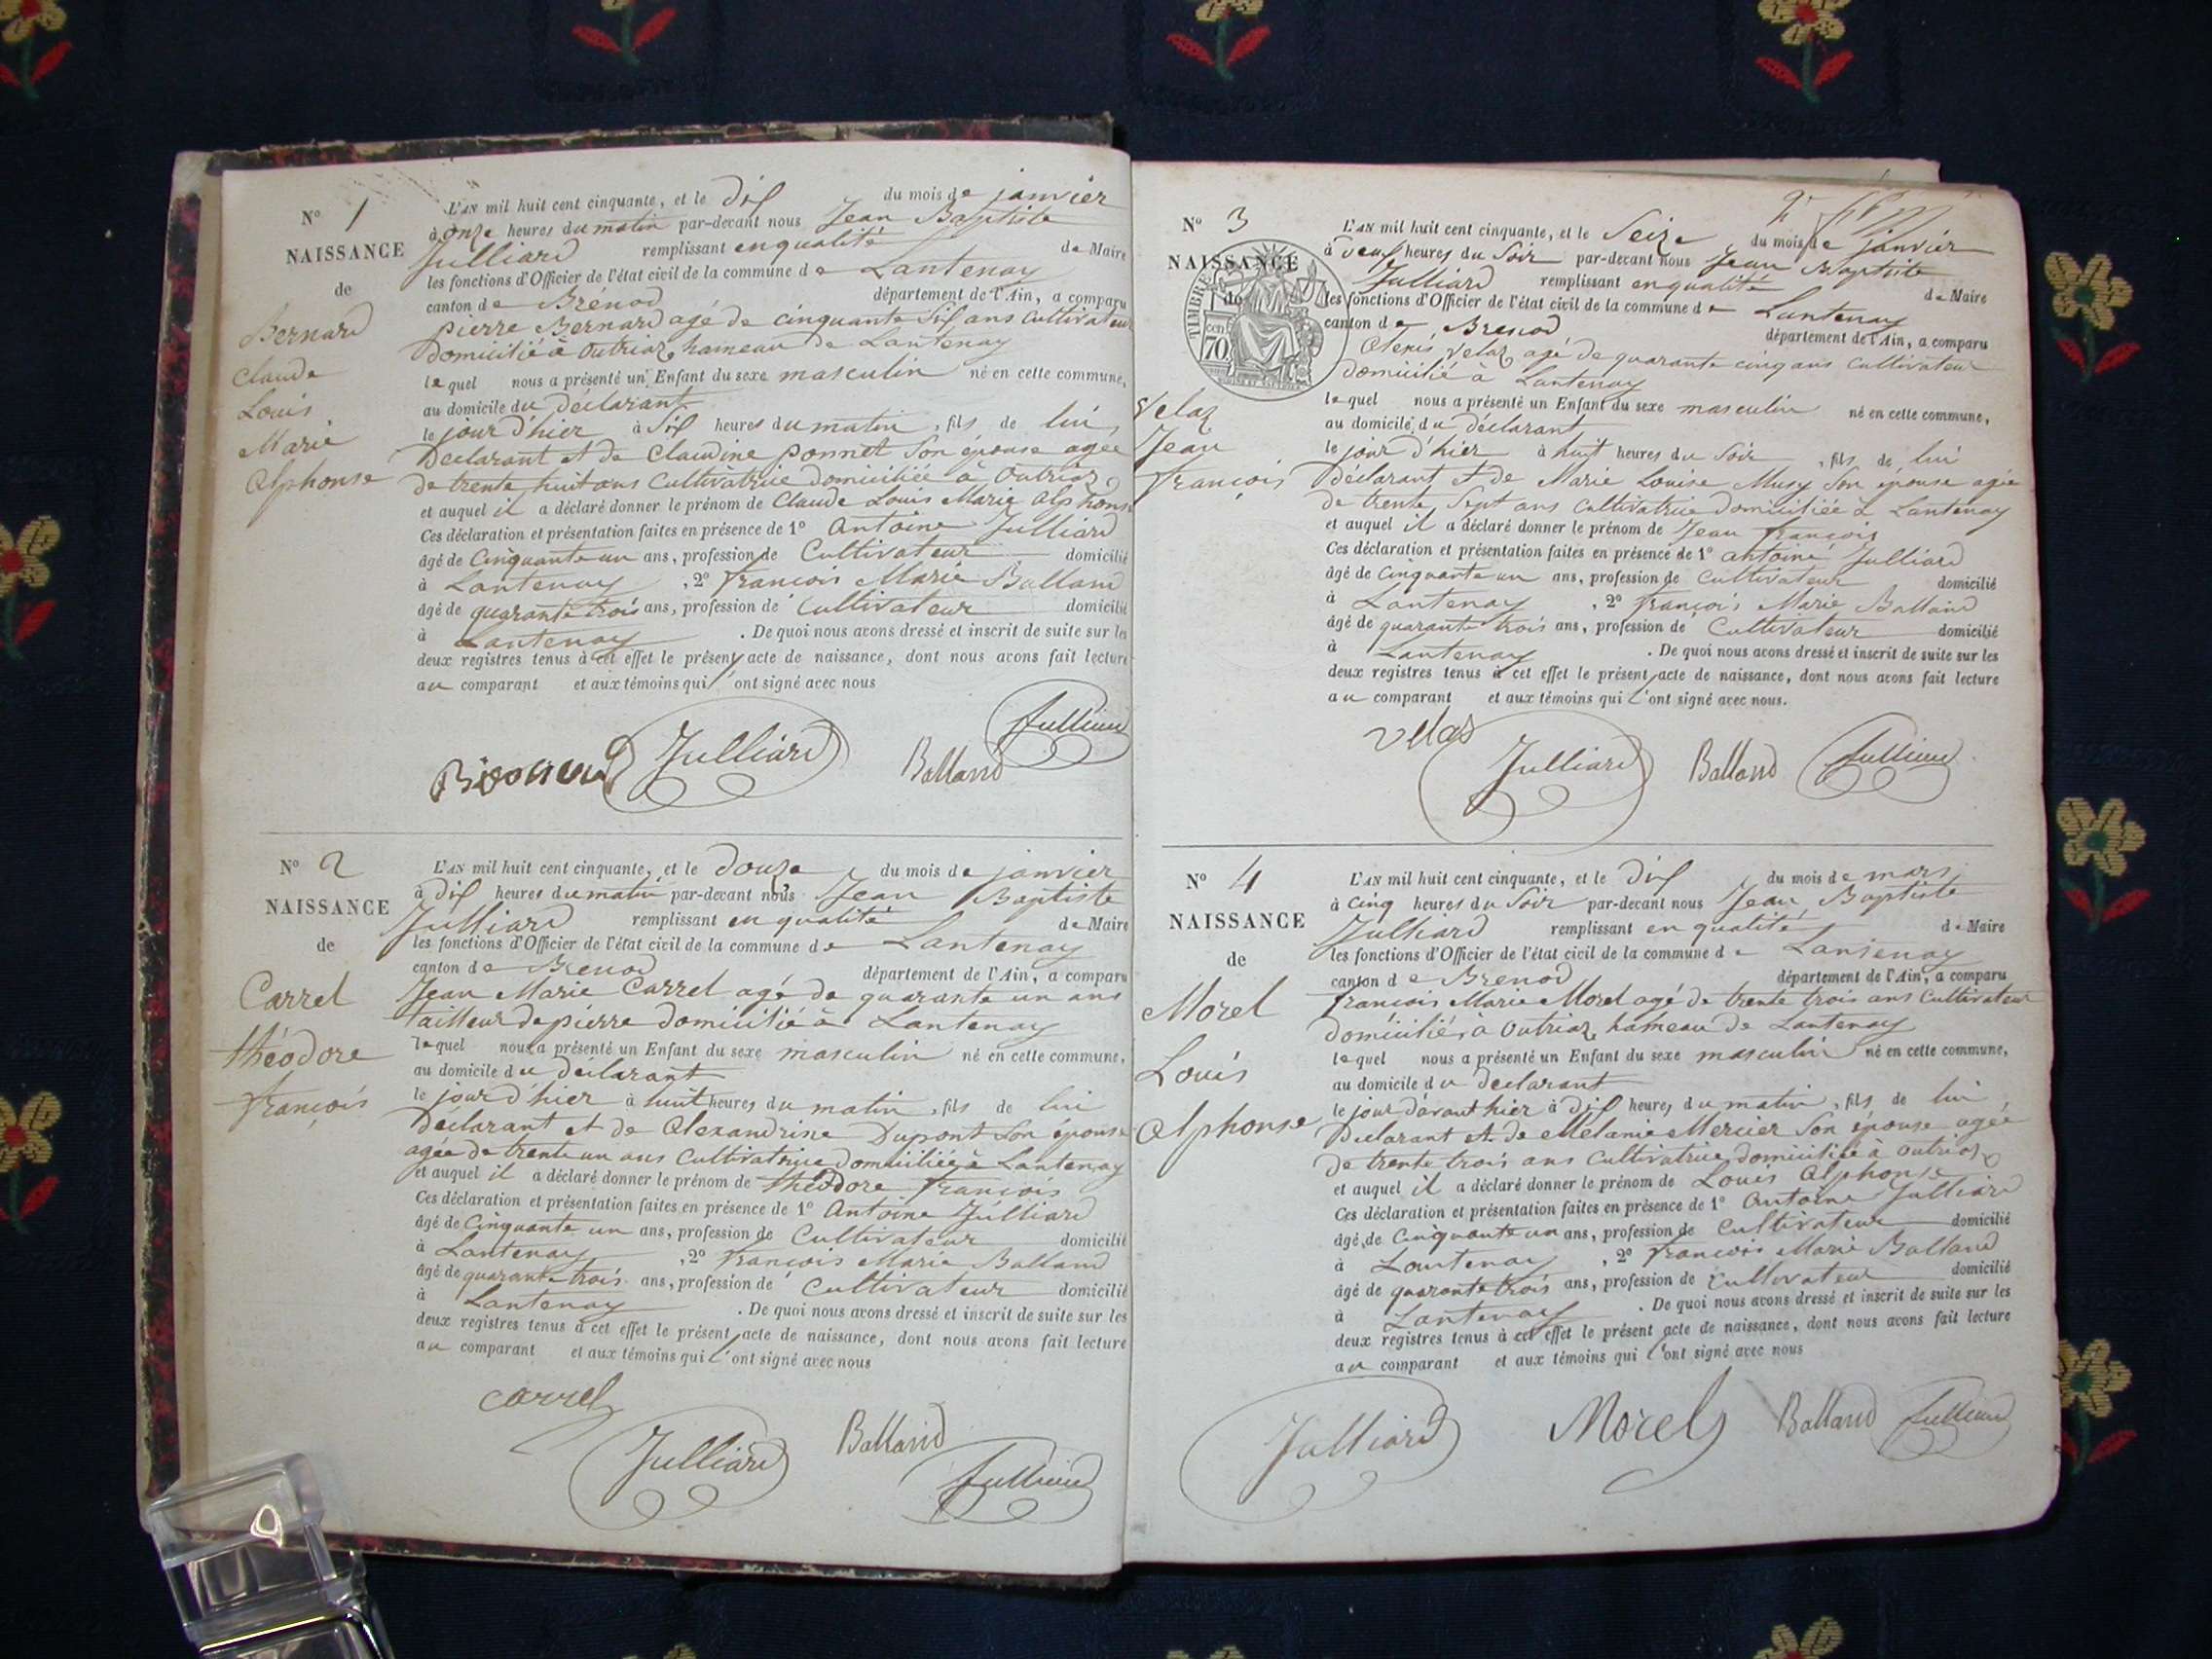 N° 1
NAISSANCE
de
Bernard
Claude
Louis
Marie
Alphonse
L'AN mil huit cent cinquante, et le Dix du mois de janvier
à onze heures du matin par-devant nous Jean Baptiste
Julliard remplissant en qualité de Maire
les fonctions d'Officier de l'état civil de la commune de Lantenay
canton de Brénod département de l'Ain, a comparu
pierre Bernard agé de cinquante six ans cultivateur
Domicilié à outriaz hameau de Lantenay
lequel nous a présenté un Enfant du sexe masculin né en cette commune,
au domicile du déclarant
le jour d'hier à six heures du matin, fils de lui
Déclarant et de Claudine ponnet son épouse agée
de trente huit ans cultivatrice domiciliée à outriaz
et auquel il a déclaré donner le prénom de Claude Louis Marie Alphonse
Ces déclaration et présentation faites en présence de 1° Antoine Julliard
âgé de Cinquante un ans, profession de Cultivateur domicilié
à Lantenay, 2° françois Marie Balland
âgé de quarante trois ans, profession de Cultivateur domicilié
à Lantenay. De quoi nous avons dressé et inscrit de suite sur les
deux registres tenus à cet effet le présent acte de naissance, dont nous avons fait lecture
au comparant et aux témoins qui l'ont signé avec nous
Julliard Balland
N° 2
NAISSANCE
de
Carrel
théodore
françois
L'AN mil huit cent cinquante, et le douze du mois de janvier
à dix heures du matin par-devant nous Jean Baptiste
Julliard remplissant en qualité de Maire
les fonctions d'Officier de l'état civil de la commune de Lantenay
canton de Brenod département de l'Ain, a comparu
Jean Marie Carrel agé de quarante un ans
tailleur de pierre domicilié à Lantenay
lequel nous a présenté un Enfant du sexe masculin né en cette commune,
au domicile du déclarant
le jour d'hier à huit heures du matin, fils de lui
Déclarant et de Alexandrine Dupont son épouse
agée de trente un ans cultivatrice domiciliée à Lantenay
et auquel il a déclaré donner le prénom de théodore françois
Ces déclaration et présentation faites en présence de 1° Antoine Julliard
âgé de Cinquante un ans, profession de Cultivateur domicilié
à Lantenay, 2° françois Marie Balland
âgé de quarante trois ans, profession de Cultivateur domicilié
à Lantenay. De quoi nous avons dressé et inscrit de suite sur les
deux registres tenus à cet effet le présent acte de naissance, dont nous avons fait lecture
au comparant et aux témoins qui l'ont signé avec nous
carrel
Julliard Balland
N° 3
NAISSANCE
de
TIMBRE
cen
70
Velaz
Jean
françois
L'AN mil huit cent cinquante, et le Seize du mois de janvier
à heures du Soir par-devant nous Jean Baptiste
Julliard remplissant en qualité de Maire
les fonctions d'Officier de l'état civil de la commune de Lantenay
canton de Brenod département de l'Ain, a comparu
Alexis Velaz agé de quarante cinq ans cultivateur
domicilié à Lantenay
lequel nous a présenté un Enfant du sexe masculin né en cette commune,
au domicile du déclarant
le jour d'hier à huit heures du Soir, fils de lui
Déclarant et de Marie Louise Musy son épouse agée
de trente sept ans cultivatrice domiciliée à Lantenay
et auquel il a déclaré donner le prénom de Jean françois
Ces déclaration et présentation faites en présence de 1° antoine Julliard
âgé de Cinquante un ans, profession de cultivateur domicilié
à Lantenay, 2° françois Marie Balland
âgé de quarante trois ans, profession de Cultivateur domicilié
à Lantenay. De quoi nous avons dressé et inscrit de suite sur les
deux registres tenus à cet effet le présent acte de naissance, dont nous avons fait lecture
au comparant et aux témoins qui l'ont signé avec nous.
velas
Julliard Balland
N° 4
NAISSANCE
de
Morel
Louis
Alphonse
L'AN mil huit cent cinquante, et le Dix du mois de mars
à cinq heures du Soir par-devant nous Jean Baptiste
Julliard remplissant en qualité de Maire
les fonctions d'Officier de l'état civil de la commune de Lantenay
canton de Brenod département de l'Ain, a comparu
françois Marie Morel agé de trente trois ans Cultivateur
domicilié à outriaz hameau de Lantenay
lequel nous a présenté un Enfant du sexe masculin né en cette commune,
au domicile du declarant
le jour d'avant hier à dix heures du matin, fils de lui
Declarant et de Melanie Mercier son épouse agée
de trente trois ans cultivatrice domiciliée à outriaz
et auquel il a déclaré donner le prénom de Louis Alphonse
Ces déclaration et présentation faites en présence de 1° Antoine Julliard
âgé de Cinquante un ans, profession de cultivateur domicilié
à Lantenay, 2° françois Marie Balland
âgé de quarante trois ans, profession de cultivateur domicilié
à Lantenay. De quoi nous avons dressé et inscrit de suite sur les
deux registres tenus à cet effet le présent acte de naissance, dont nous avons fait lecture
au comparant et aux témoins qui l'ont signé avec nous
Julliard Morel Balland